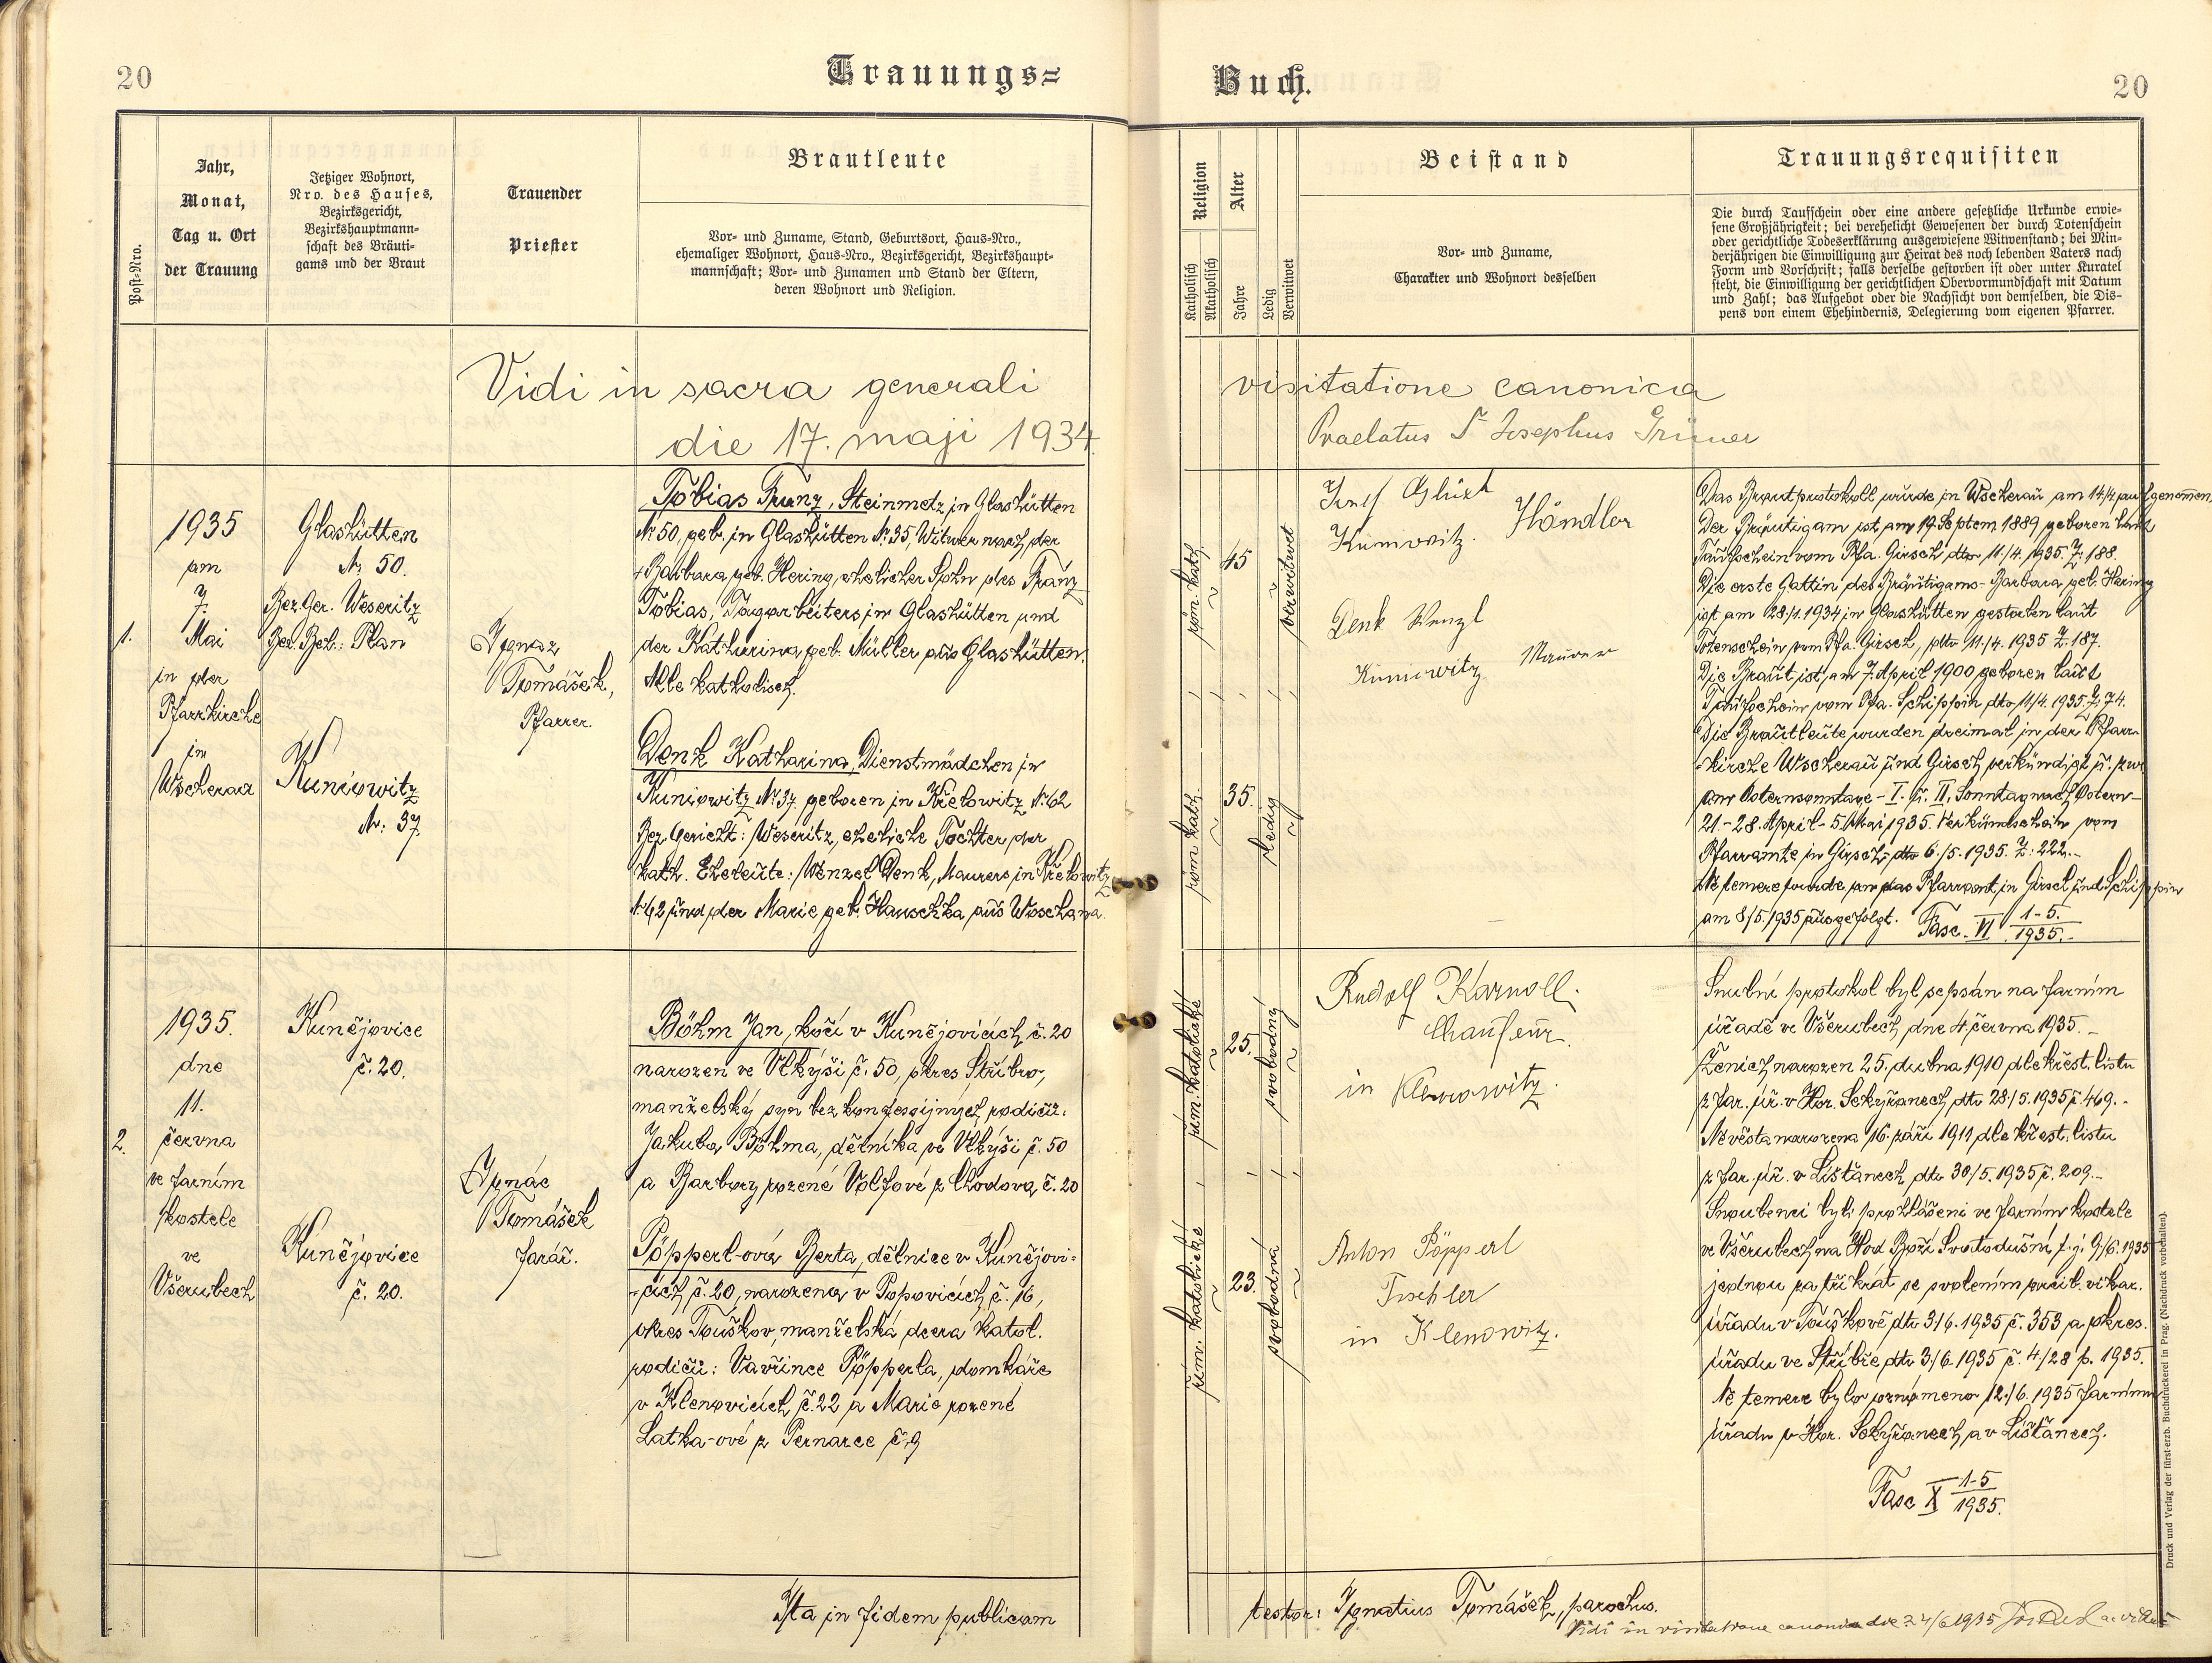 20
Trauungs=
Buch.
20
Post-Nro.
Jahr,
Monat,
Tag u. Ort
der Trauung
Jetziger Wohnort,
Nro. des Hauses,
Bezirksgericht,
Bezirkshauptmann-
schaft des Bräuti-
gams und der Braut
Trauender
Priester
Brautleute
Vor- und Zuname, Stand, Geburtsort, Haus-Nro.,
ehemaliger Wohnort, Haus-Nro., Bezirksgericht, Bezirkshaupt-
mannschaft; Vor- und Zunamen und Stand der Eltern,
deren Wohnort und Religion.
Religion
Katholisch
Akatholisch
Alter
Jahre
Ledig
Verwitwet
Beistand
Vor- und Zuname,
Charakter und Wohnort desselben
Trauungsrequisiten
Die durch Taufschein oder eine andere gesetzliche Urkunde erwie-
sene Großjährigkeit; bei verehelicht Gewesenen der durch Totenschein
oder gerichtliche Todeserklärung ausgewiesene Witwenstand; bei Min-
derjährigen die Einwilligung zur Heirat des noch lebenden Vaters nach
Form und Vorschrift; falls derselbe gestorben ist oder unter Kuratel
steht, die Einwilligung der gerichtlichen Obervormundschaft mit Datum
und Zahl; das Aufgebot oder die Nachsicht von demselben, die Dis-
pens von einem Ehehindernis, Delegierung vom eigenen Pfarrer.
Vidi in sacra generali visitatione canonica
die 17. maji 1934. Praelatus Josephus Grüner
1.
1935
am
7.
Mai
in der
Pfarrkirche
in
Wscherau
Glashütten
Nr. 50.
Bez. Ger. Weseritz
Bez. Beh.: Plan
Kuniowitz
Nr: 37.
Ignaz
Tomášek,
Pfarrer.
Tobias Franz, Steinmetz in Glashütten
Nr. 50, geb. in Glashütten Nr. 35, Witwer nach der
+ Barbara geb. Hering, ehelicher Sohn des Franz
Tobias, Tagarbeiters in Glashütten und
der Katharina geb. Müller aus Glashütten.
Alle katholisch.
Denk Katharina, Dienstmädchen in
Kuniowitz Nr. 37, geboren in Křelowitz Nr. 62
Bez. Gericht: Weseritz, eheliche Tochter der
kath. Eheleute: Wenzel Denk, Maurers in Křelowitz
Nr. 62 und der Marie geb. Hauschka aus Woschana.
röm. kath.
45
verwitwet
röm. kath.
35.
ledig
Josef Glückl
Kuniowitz. Händler
Denk Wenzl
Kuniowitz Maurer
Das Brautprotokoll wurde in Wscherau am 14/4 aufgenommen.
Der Bräutigam ist am 19. Septem. 1889 geboren laut
Taufschein vom Pfa. Girsch dto 11./4. 1935. Z. 188.
Die erste Gattin des Bräutigams - Barbara geb. Hering
ist am 28/1. 1934 in Glashütten gestorben laut
Totenschein vom Pfa. Girsch, dto 11./4. 1935 Z. 187.
Die Braut ist am 7. April 1900 geboren laut
Taufschein vom Pfa. Schippin dto 11/4. 1935. Z. 74.
Die Brautleute wurden dreimal in der Pfarr-
kirche Wscherau und Girsch verkündigt u. zwar
am Osternsonntage - I. u. II. Sonntag nach Ostern -
21. - 28. April - 5. Mai 1935. Verkündschein vom
Pfarramte in Girsch dto 6./5. 1935. Z: 222. -
Ne temere wurde an das Pfarramt in Girsch und Schippin
am 8/5. 1935 ausgefolgt. Fasc. VI 1-5. / 1935. -
2.
1935.
dne
11.
června
ve farním
kostele
ve
Všerubech
Kunějovice
č. 20.
Kunějovice
č. 20.
Ignác
Tomášek
farář.
Böhm Jan, kočí v Kunějovicích č. 20
narozen ve Vlkýši č. 50, okres Stříbro,
manželský syn bezkonfesijných rodičů:
Jakuba Böhma, dělníka ve Vlkýši č. 50
a Barbory rozené Volfové z Chodova č. 20
Pöpperl-ová Berta, dělnice v Kunějovi-
cích č. 20, narozena v Popovicích č. 16,
okres Touškov, manželská dcera katol.
rodičů: Vavřince Pöpperla, domkáře
v Klenovicích č. 22 a Marie rozené
Latka-ové z Pernarce č. 9
řím. katolické
25.
svobodný
řím. katolické
23.
svobodná
Rudolf Karnoll.
Chaufeur.
in Klenowitz.
Anton Pöpperl
Tischler
in Klenowitz.
Snubní protokol byl sepsán na farním
úřadě ve Všerubech, dne 4. června 1935. -
Ženich narozen 25. dubna 1910 dle křest. listu
z far. úř. v Hor. Sekyřanech, dto 28./5. 1935 č. 469. -
Nevěsta narozena 16. září 1911 dle křest. listu
z far. úř. v Líšťanech, dto 30/5. 1935 č. 209. -
Snoubenci byli prohlášeni ve farním kostele
ve Všerubech na Hod Boží Svatodušní t. j. 9/6. 1935
jednou za třikrát se svolením vikar.
úřadu v Touškově dto 3/6. 1935 č. 353 a okres.
úřadu ve Stříbře dto 3/6 1935 č. 4/28 p. 1935.
Ne temere bylo oznámeno 12./6. 1935 farnímu
úřadu v Hor. Sekyřanech a v Líšťanech.
Fasc X 1-5 / 1935.
Ita in fidem publicam testor: Ignatius Tomášek, parochus.
Vidi in visitatione canonica die 24/6 1935
Druck und Verlag der fürst-erzb. Buchdruckerei in Prag. (Nachdruck vorbehalten).